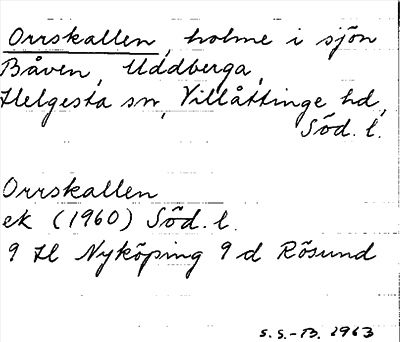 Orrskallen, holme i sjön
Båven, Uddberga,
Helgesta sn, Villåttinge hd,
Söd. l.
Orrskallen
ek (1960) Söd. l.
9 H Nyköping 9 d Rösund
S.S.-B. 1963